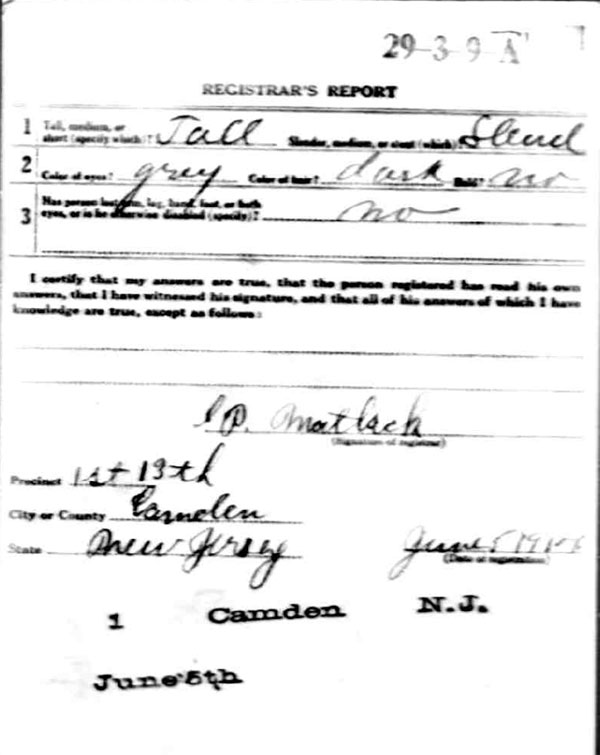 29-3-9 A
REGISTRAR'S REPORT
1 Tall, medium, or short (specify which)? Tall Slender, medium, or stout (which)? Slend
2 Color of eyes? grey Color of hair? dark Bald? no
3 Has person lost arm, leg, hand, foot, or both eyes, or is he otherwise disabled (specify)? no
I certify that my answers are true, that the person registered has read his own
answers, that I have witnessed his signature, and that all of his answers of which I have
knowledge are true, except as follows:
P. Matlack
(Signature of registrar)
Precinct 1st 13th
City or County Camden
State New Jersey June 5
(Date of registration)
1 Camden N.J.
June 5th